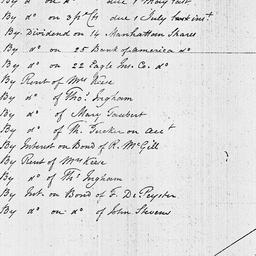 By do on do due 1 May last
By do on 3 pr Cts due 1 July last inst
By Dividend on 14 Manhattan Shares
By do on 25 Bank of America do
By do on 22 Eagle Ins. Co. do
By Rent of Mrs Kese
By do of Thos Ingham
By do of Mary Taubert
By do of Th. Tucker on acct
By Interest on Bond of R. McGill
By Rent of Mrs Kese
By do of Ths Ingham
By Int. on Bond of F. De Peyster
By do on do of John Stevens